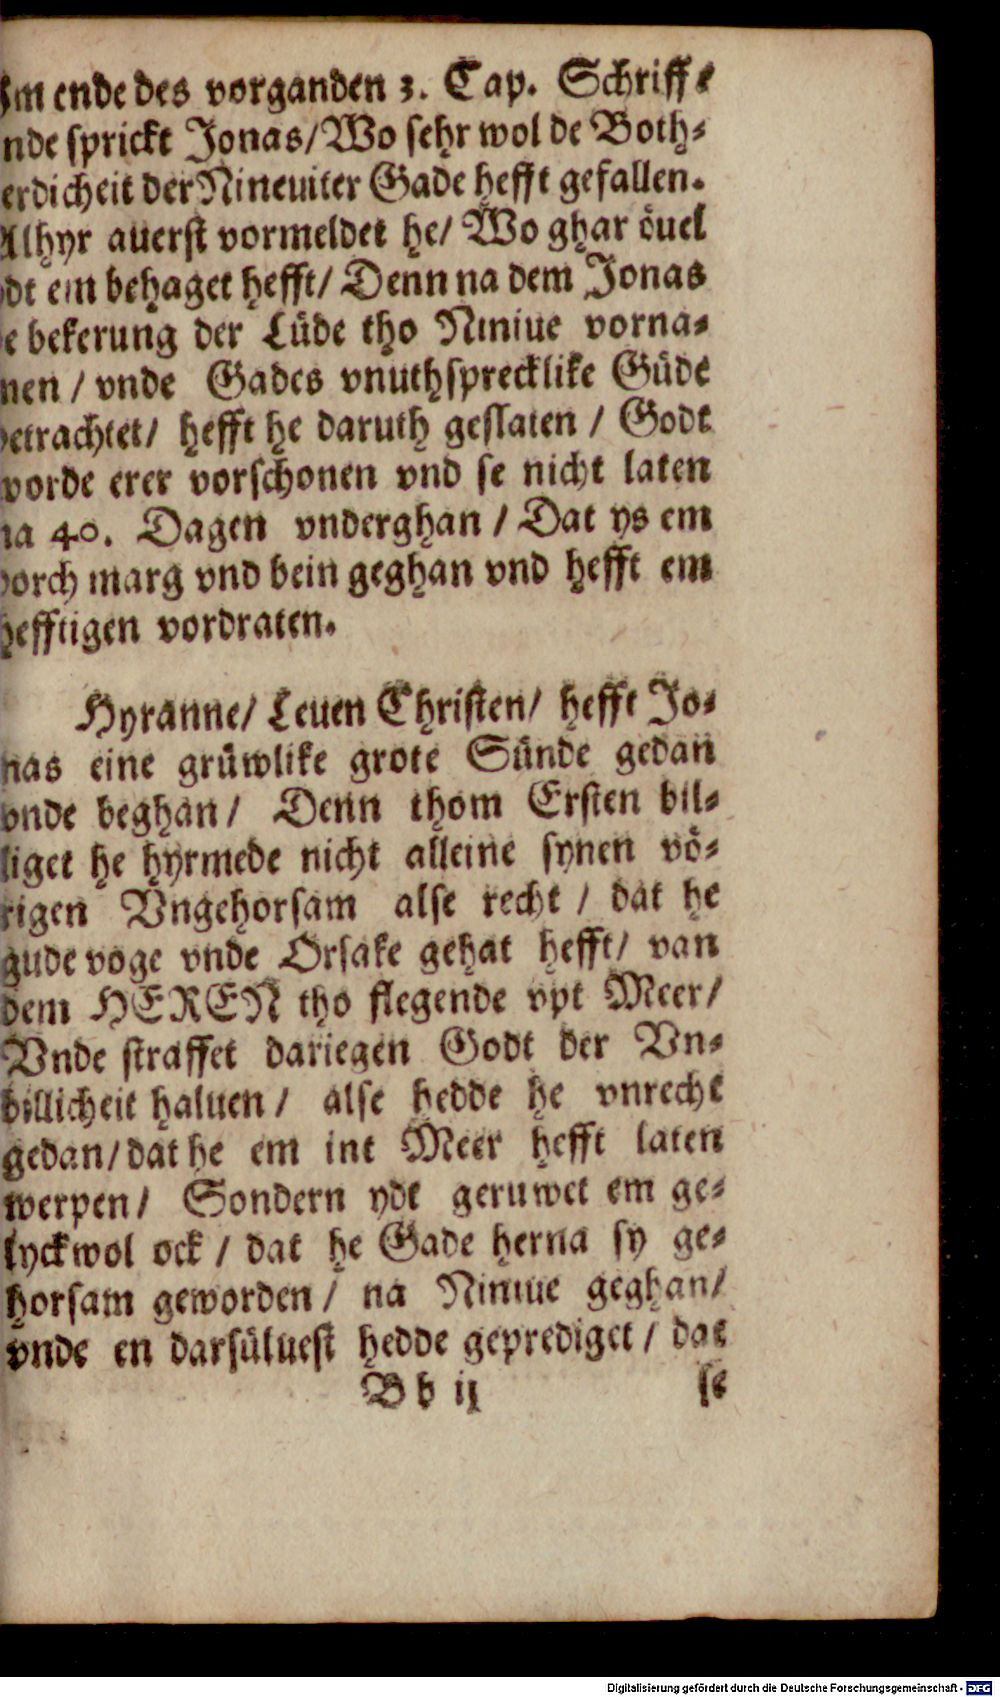 Im ende des vorganden 3. Cap. Schriff⸗
nde sprickt Jonas/ Wo sehr wol de Both⸗
erdicheit der Nineuiter Gade hefft gefallen.
Alhyr auerst vormeldet he/ Wo ghar öuel
dt em behaget hefft/ Denn na dem Jonas
e bekerung der Lüde tho Niniue vorna⸗
nen / vnde Gades vnuthsprecklike Güde
betrachtet/ hefft he daruth geslaten / Godt
worde erer vorschonen vnd se nicht laten
na 40. Dagen vnderghan / Dat ys em
dorch marg vnd bein geghan vnd hefft em
hefftigen vordraten.
Hyranne/ Leuen Christen/ hefft Jo⸗
nas eine grüwlike grote Sünde gedan
vnde beghan/ Denn thom Ersten bil⸗
liget he hyrmede nicht alleine synen vö⸗
rigen Vngehorsam alse recht / dat he
gude voge vnde Orsake gehat hefft/ van
dem HEREN tho flegende vpt Meer/
Vnde straffet dariegen Godt der Vn⸗
billicheit haluen / alse hedde he vnrecht
gedan/ dat he em int Meer hefft laten
werpen/ Sondern ydt geruwet em ge⸗
lyckwol ock / dat he Gade herna sy ge⸗
horsam geworden / na Niniue geghan/
vnde en darsüluest hedde geprediget / dat
B b ij se
Digitalisierung gefördert durch die Deutsche Forschungsgemeinschaft - DFG